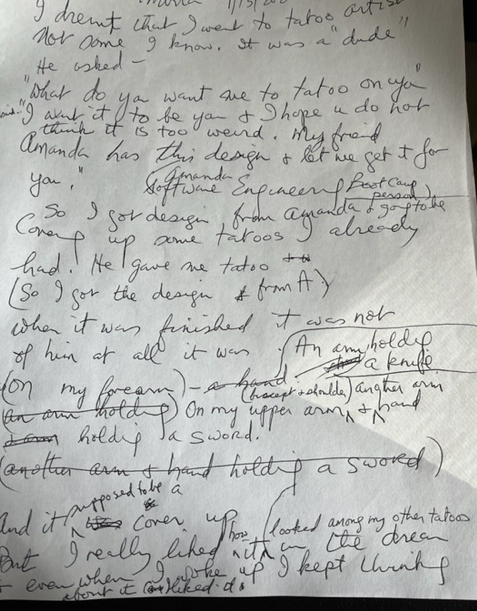 I dremt that I went to tatoo artist
Not some I know. It was a "dude"
He asked —
"What do you want me to tatoo on you"
"I want it to be you & I hope u do not
think it is too weird. My friend
Amanda has this design & let me get it for
you." (Amanda Software Engineering BootCamp person)
So I got design from Amanda & got to be
Cover up some tatoos I already
had. He gave me tatoo
(So I got the design from A)
When it was finished it was not
of him at all it was An arm holding
a knife
(On my forearm) – a hand
(an arm holding) On my upper arm (bicept + shoulder) another arm & hand
holding a sword.
(another arm & hand holding a sword)
And it supposed to be a cover up
But I really liked how it looked among my other tatoos in the dream
& even when I woke up I kept thinking
about it & liked it.